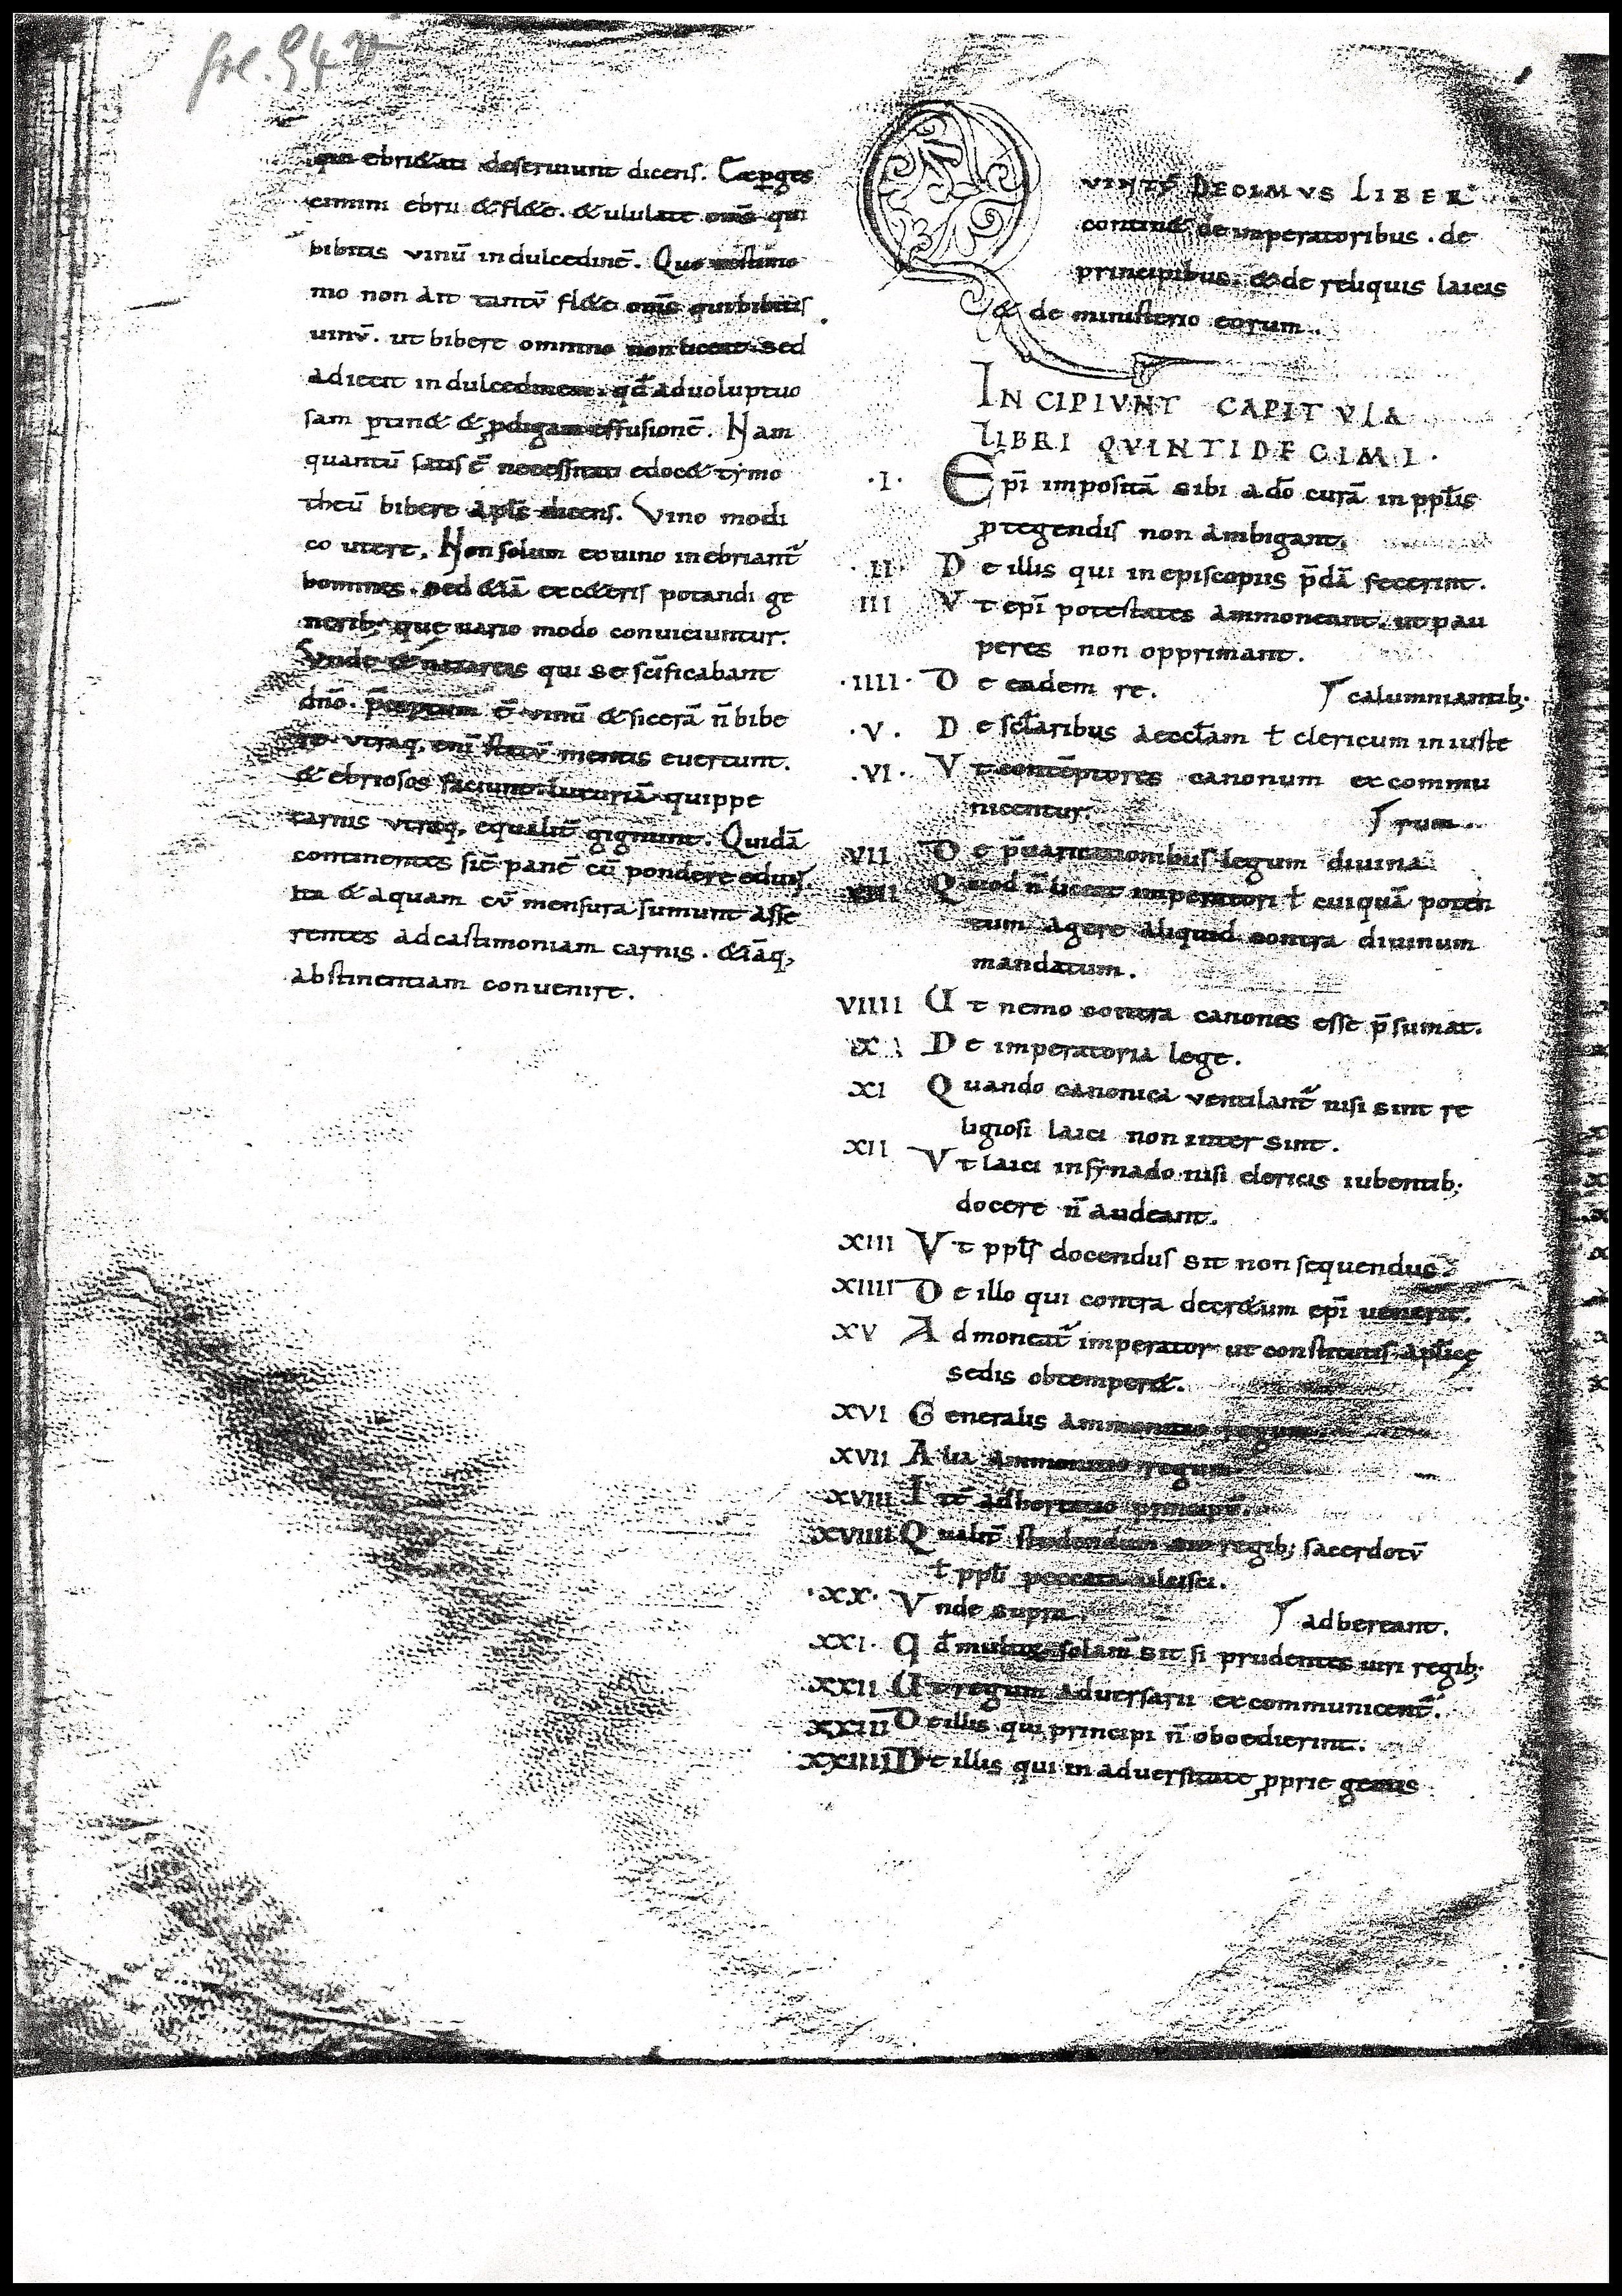 fol. 94 v
qui ebri&ati deseruiunt dicens. Expges
cimini ebrii & fl&e. & ululate om̄s qui
bibitis vinū in dulcedinē. Quo
mo non ait tantū fl&e om̄s qui bibitis
uinū. ut bibere omnino non liceat. sed
adiecit in dulcedinem. qđ ad uoluptuo
sam ptin& & pdigam effusionē. Nam
quantū satis ē necessitati edoc& tymo
theū bibere apl̄s dicens. Vino modi
co utere. Non solum eo uino inebriant̄
homines. sed &iā ex c&eris potandi ge
nerib; que uario modo conuiciuntur.
Vnde & nazareis qui se sc̄ificabant
dn̄o. p̄ceptum ē vinū & sicerā n̄ bibe
re. vtraq, eni statū mentis euertunt.
& ebriosos faciunt. luxuriā quippe
carnis vtraq, equalit̄ gignunt. Quidā
continentes sic̄ panē cū pondere edunt.
ita & aquam cū mensura sumunt asse
rentes ad castimoniam carnis. &iāq,
abstinentiam conuenire.
QVINTꝰ DECIMVS LIBER
contin& de imperatoribus. de
principibus. & de reliquis laicis
& de ministerio eorum.
INCIPIVNT CAPITVLA
LIBRI QVINTIDECIMI.
.I. Ep̄i impositā sibi a dō curā in ppl̄is
ptegendis non ambigant.
.II. De illis qui in episcopis p̄dā fecerint.
III Vt ep̄i potestates ammoneant. ut pau
peres non opprimant.
.IIII. De eadem re. calumniantib;
.V. De scl̄aribus aeccl̄am ł clericum iniuste
.VI. Vt contēptores canonum excommu
nicentur. rum.
VII De p̄uaricationibus legum diuina
VIII Quod n̄ liceat imperatori ł cuiquā poten
tum agere aliquid contra diuinum
mandatum.
VIIII Ut nemo contra canones esse p̄sumat.
X De imperatoria lege.
XI Quando canonica ventilant̄ nisi sint re
ligiosi laici non inter sint.
XII Vt laici in synado nisi clericis iubentib;
docere n̄ audeant.
XIII Vt ppl̄s docendus sit non sequendus.
XIIII De illo qui contra decr&um ep̄i uenerit.
XV Admoneat̄ imperator ut constitutis apl̄ice
sedis obtemper&.
XVI Generalis ammonitio regum.
XVII Alia ammonitio regum
XVIII It̄ adhortatio principū.
XVIIII Qualit̄ studendum sit regib; sacerdotū
ł ppl̄i peccata ulcisci.
.XX. Vnde supra adhereant.
XXI. Qđ multis solam̄ sit si prudentes uiri regib;
XXII Ut regum aduersarii excommunicent̄.
XXIII De illis qui principi n̄ oboedierint.
XXIIII De illis qui in aduersitate pprie gentis